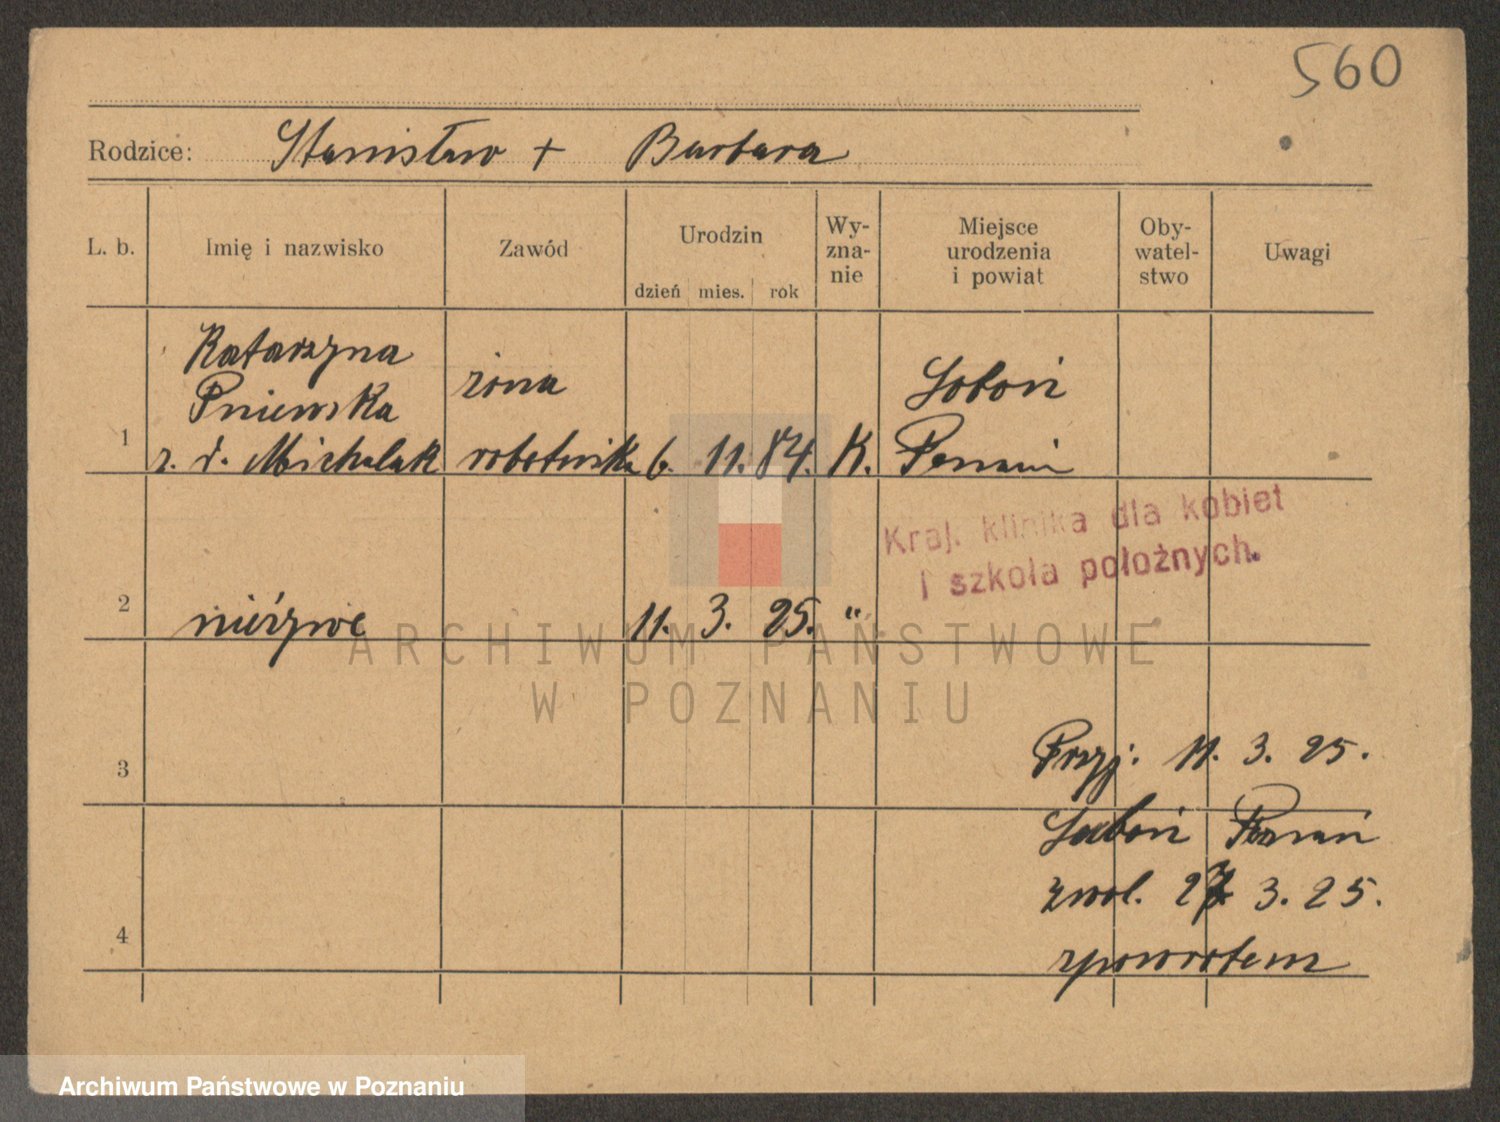 560
Rodzice: Stanisław + Barbara
L. b. Imię i nazwisko Zawód Urodzin Wy- Miejsce Oby- Uwagi
zna- urodzenia watel-
dzień mies. rok nie i powiat stwo
Katarzyna
Pniewska żona Loboń
1 z. d. Michalak robotnika 6. 11. 84. K. Poznań
Kraj. klinika dla kobiet
i szkoła położnych.
2 nieżywe 11. 3. 25. "
ARCHIWUM PAŃSTWOWE
W POZNANIU
3 Przyj. 11. 3. 25.
Luboń Poznań
zwol. 27 3. 25.
4 zpowrotem
Archiwum Państwowe w Poznaniu